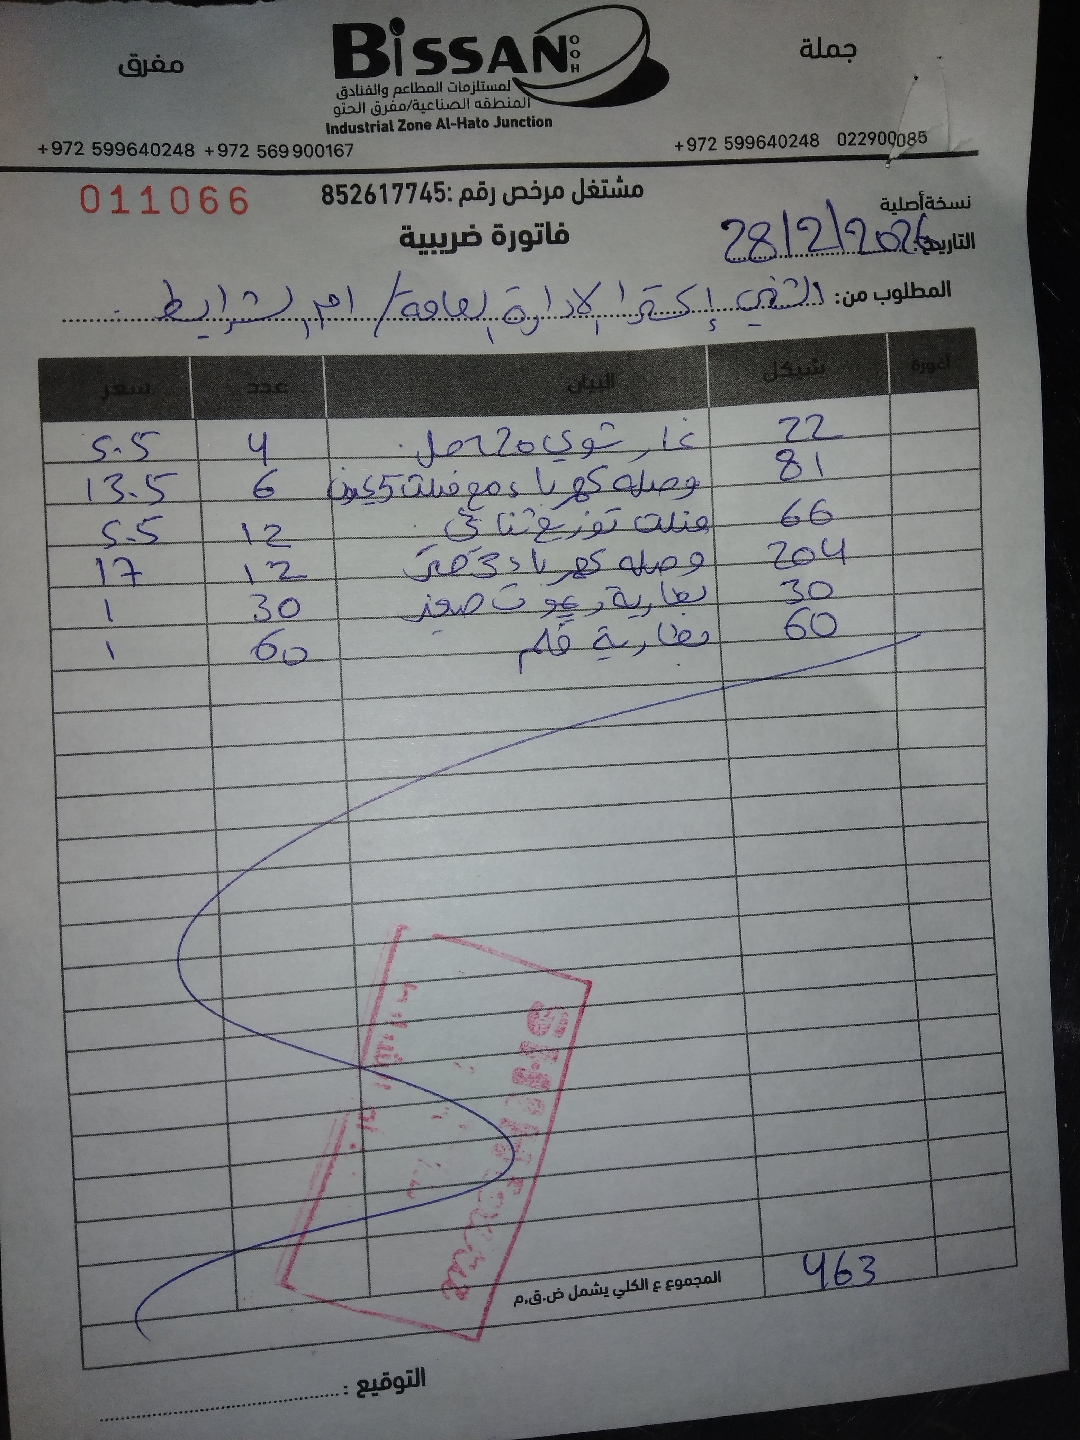 جملة
BISSAN
OOH
مفرق
لمستلزمات المطاعم والفنادق
المنطقه الصناعية/مفرق الحتو
Industrial Zone Al-Hato Junction
+972 599640248 022900085
+972 599640248 +972 569900167
مشتغل مرخص رقم :852617745
011066
نسخة أصلية
فاتورة ضريبية
التاريخ: 28/2/2026
المطلوب من: الإدارة العامة / ام الشرايط
أغورة شيكل البيان عدد سعر
22 غاز 4 5.5
81 وصله كهرباء 5 6 13.5
66 توزيع ثنائي 12 5.5
204 وصله كهرباء 3 متر 12 17
30 بطارية ريموت صغير 30 1
60 بطارية قلم 60 1
المجموع ع الكلي يشمل ض.ق.م 463
التوقيع :